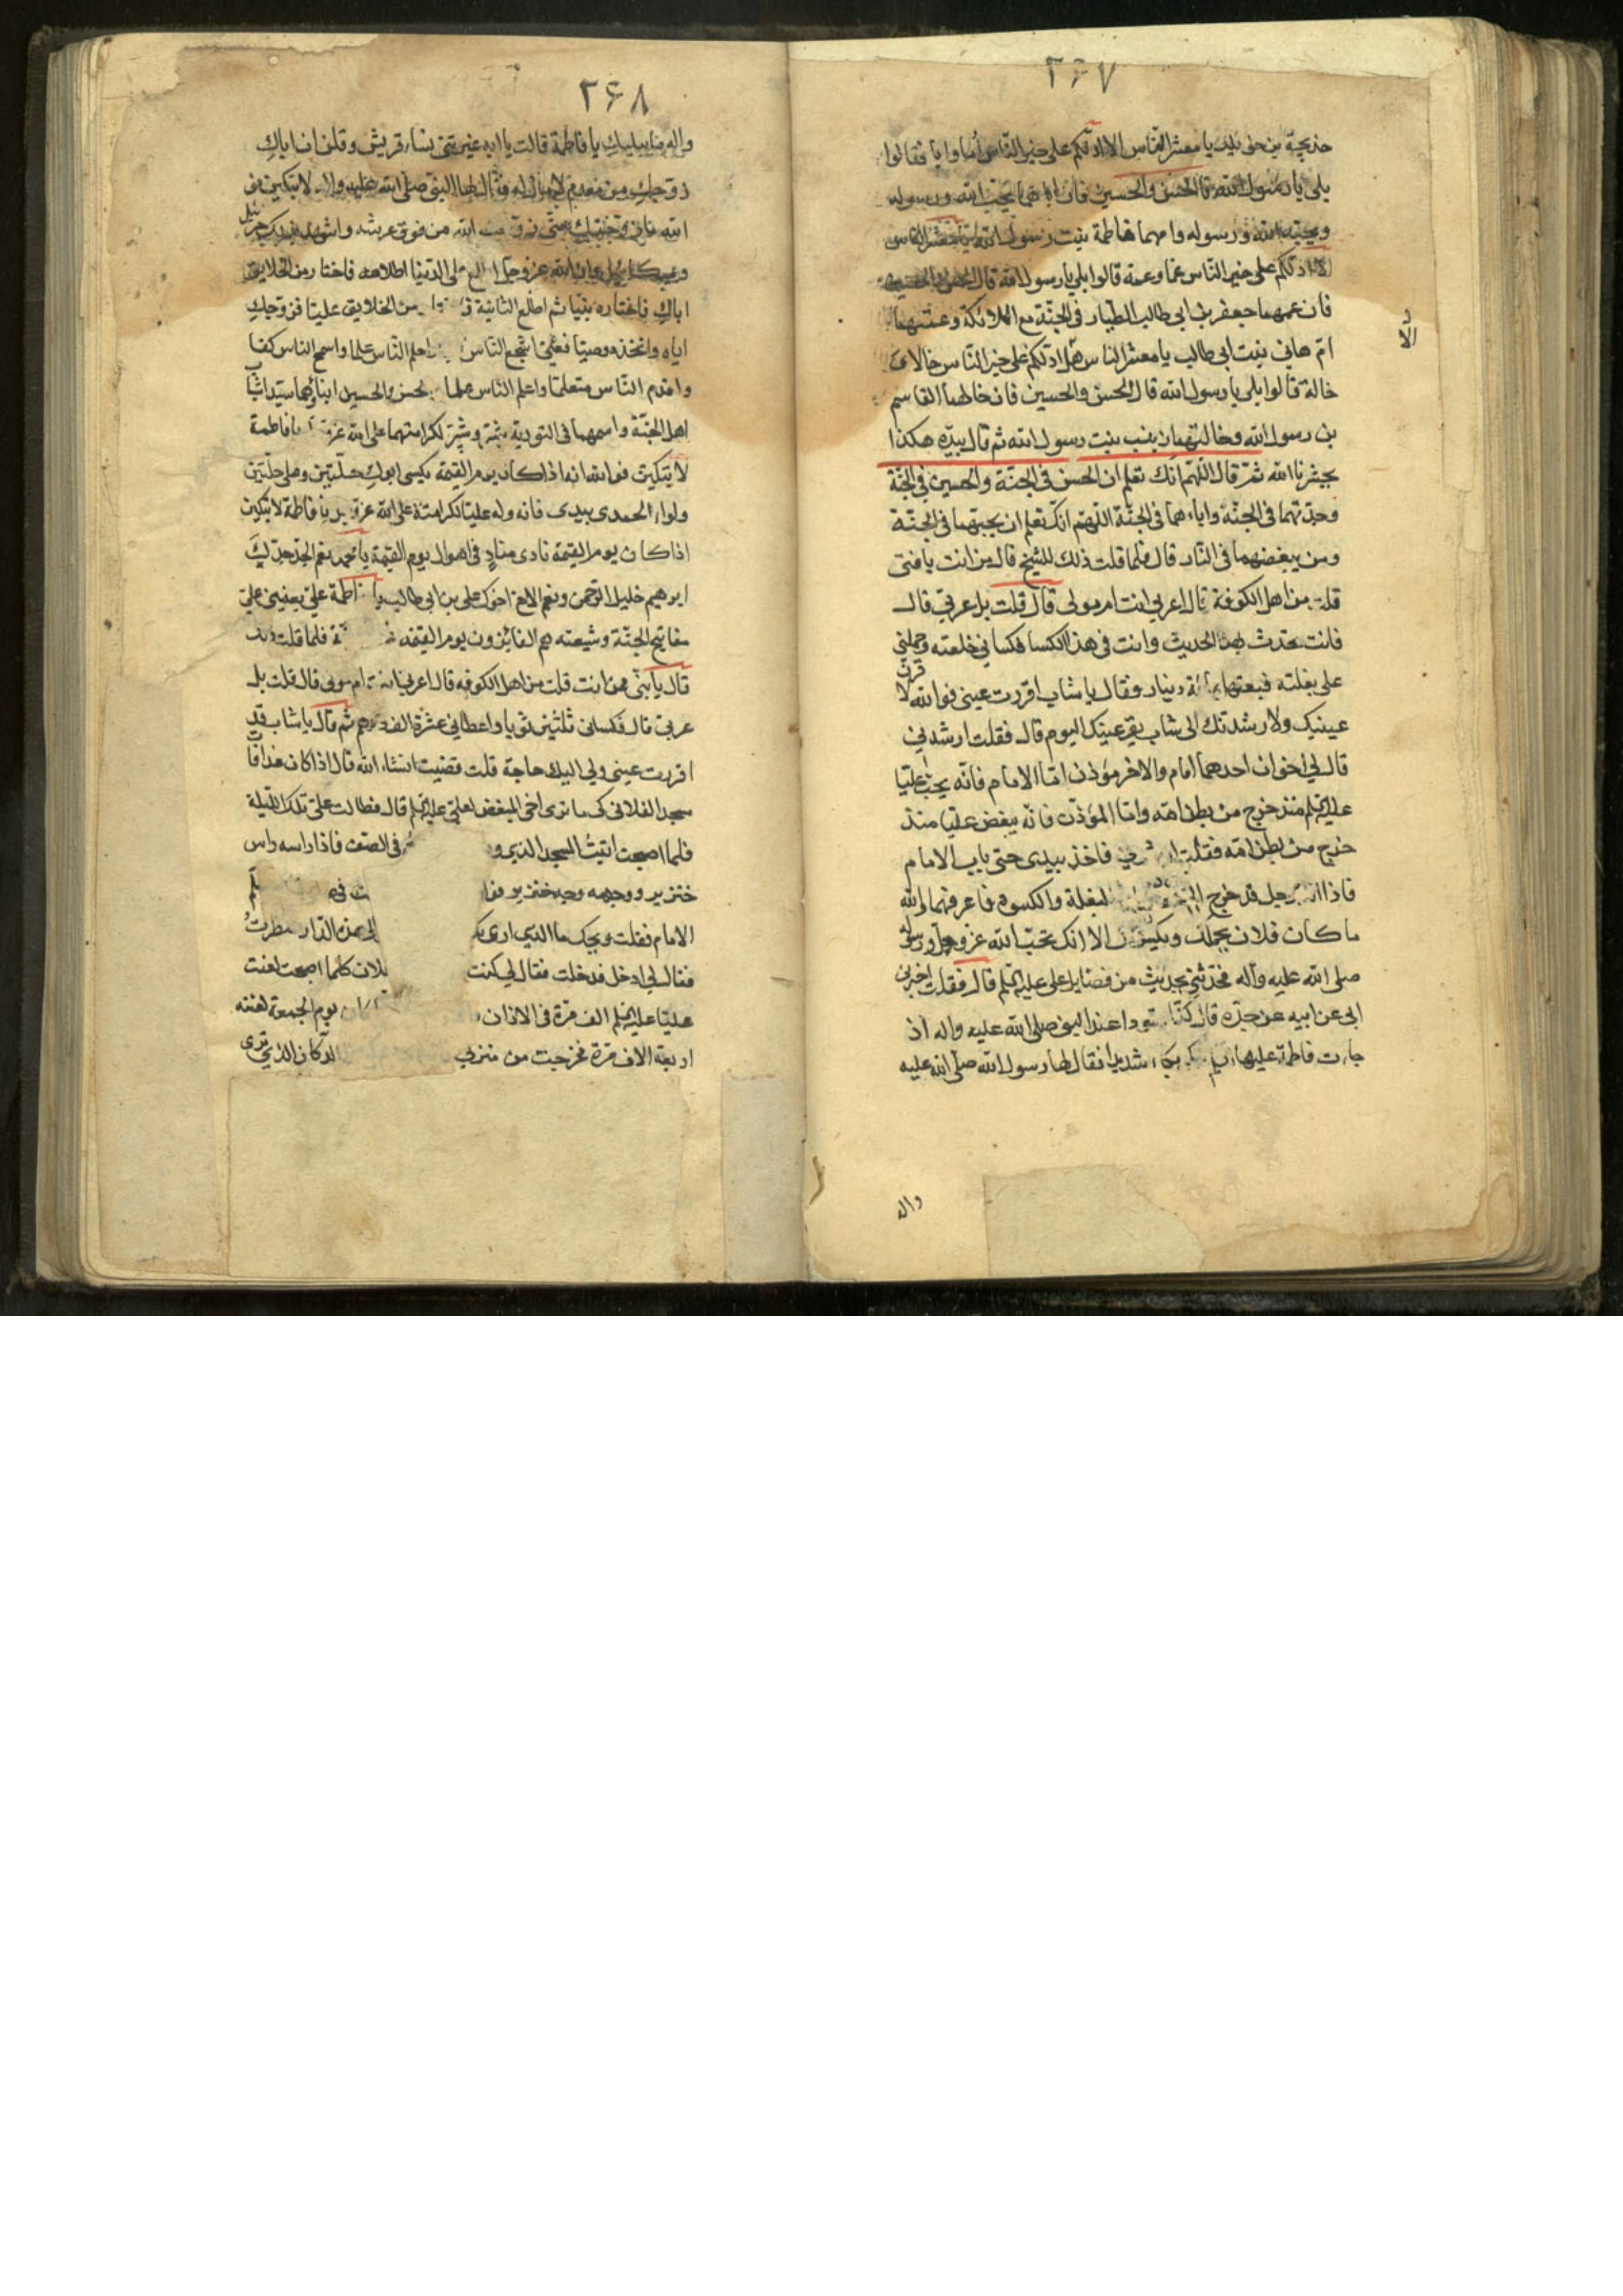 ٢٤٧
خديجة بنت خويلد يا معشر الناس الا ادلكم على خير الناس أما وابا فقالوا
بلى يا رسول الله قال الحسن والحسين فان اباهما يحب الله ورسوله
ويحبه الله ورسوله وامهما فاطمة بنت رسول الله يا معشر الناس
الا ادلكم على خير الناس عما وعمة قالوا بلى يا رسول الله قال الحسن والحسين
فان عمهما جعفر بن ابي طالب الطيار في الجنة مع الملائكة وعمتهما
ام هاني بنت ابي طالب يا معشر الناس هل ادلكم على خير الناس خالا و
خالة قالوا بلى يا رسول الله قال الحسن والحسين فان خالهما القاسم
بن رسول الله وخالتهما زينب بنت رسول الله ثم قال بيده هكذا
يحشرنا الله ثم قال اللهم انك تعلم ان الحسن في الجنة والحسين في الجنة
وجدتهما في الجنة واباهما في الجنة اللهم انك تعلم ان يحبهما في الجنة
ومن يبغضهما في النار قال فلما قلت ذلك للشيخ قال من انت يا فتى
قلت من اهل الكوفة قال اعربي انت ام مولى قال قلت بل عربي قال
فانت تحدث بهذا الحديث وانت في هذا الكسا فكساني خلعته وحملني
على بغلته فبعتها بمائة دينار فقال يا شاب اقررت عيني فوالله لا
قرن
عينيك ولارشدنك الى شاب يقر عينك اليوم قال فقلت ارشدني
قال لي اخوان احدهما امام والاخر مؤذن اما الامام فانه يحب عليا
عليه السلم منذ خرج من بطن امه واما المؤذن فانه يبغض عليا منذ
خرج من بطن امه فقلت ارشدني فاخذ بيدي حتى باب الامام
فاذا انا برجل قد خرج البغلة والكسوة فاعرفهما والله
ما كان فلان يحملك ويكسوك الا انك تحب الله عز وجل ورسوله
صلى الله عليه وآله فحدثني بحديث من فضايل على عليه السلم قال فقلت اخبرني
ابي عن ابيه عن جده قال كنا قعودا عند النبي صلى الله عليه واله اذ
جاءت فاطمة عليها السلم بكاء شديدا فقال لها رسول الله صلى الله عليه
الا
واله
٢٤٨
واله ما يبكيك يا فاطمة قالت يا ابه عيرتني نساء قريش وقلن ان اباك
زوجك من معدم لا مال له فقال لها النبي صلى الله عليه واله لا تبكين
الله ما زوجتك حتى زوجك الله من فوق عرشه واشهد بذلك جبرئيل
وميكائيل وان الله عز وجل اطلع على الدنيا اطلاعه فاختار من الخلايق
اباك فاختاره نبيا ثم اطلع الثانية من الخلايق عليا فزوجك
اياه واتخذه وصيا فعلى اشجع الناس احلم الناس علما واسمح الناس كفا
واقدم الناس سلما واعلم الناس علما الحسن والحسين ابناؤهما سيدا شباب
اهل الجنة واسمهما في التورية شبر وشبير لكرامتهما على الله عز يا فاطمة
لا تبكين فوالله انه اذا كان يوم القيمة يكسى ابوك حلتين وعلى حلتين
ولواء الحمد بيدى فاناوله عليا لكرامته على الله عز يا فاطمة لا تبكين
اذا كان يوم القيمة نادى مناد في اهوال يوم القيمة يا محمد نعم الجد جدك
ابرهيم خليل الرحمن ونعم الاخ اخوك على بن ابي طالب يا فاطمة على يعينني على
مفاتيح الجنة وشيعته هم الفائزون يوم القيمة فلما قلت ذلك
قال يا بني ممن انت قلت من اهل الكوفه قال اعربي انت ام مولى قال قلت بل
عربي قال فكساني ثلثين ثوبا واعطاني عشرة الف درهم ثم قال يا شاب قد
اقررت عيني ولي اليك حاجة قلت قضيت انشاء الله قال اذا كان غدا فات
مسجد الفلاني كى ما ترى اخى المبغض لعلى عليه السلم قال فطالت على تلك الليلة
فلما اصبحت اتيت المسجد الذي في الصف فاذا راسه راس
خنزير ووجهه وجه خنزير
الامام فقلت ويحك ما الذي ارى بك الى هذه الدار فنظرت
فقال لي ادخل فدخلت فقال لي كنت كلما اصبحت لعنت
عليا عليه السلم الف مرة في الاذان يوم الجمعة لعنته
اربعة الاف مرة فخرجت من منزلي الدكان الذي ترى